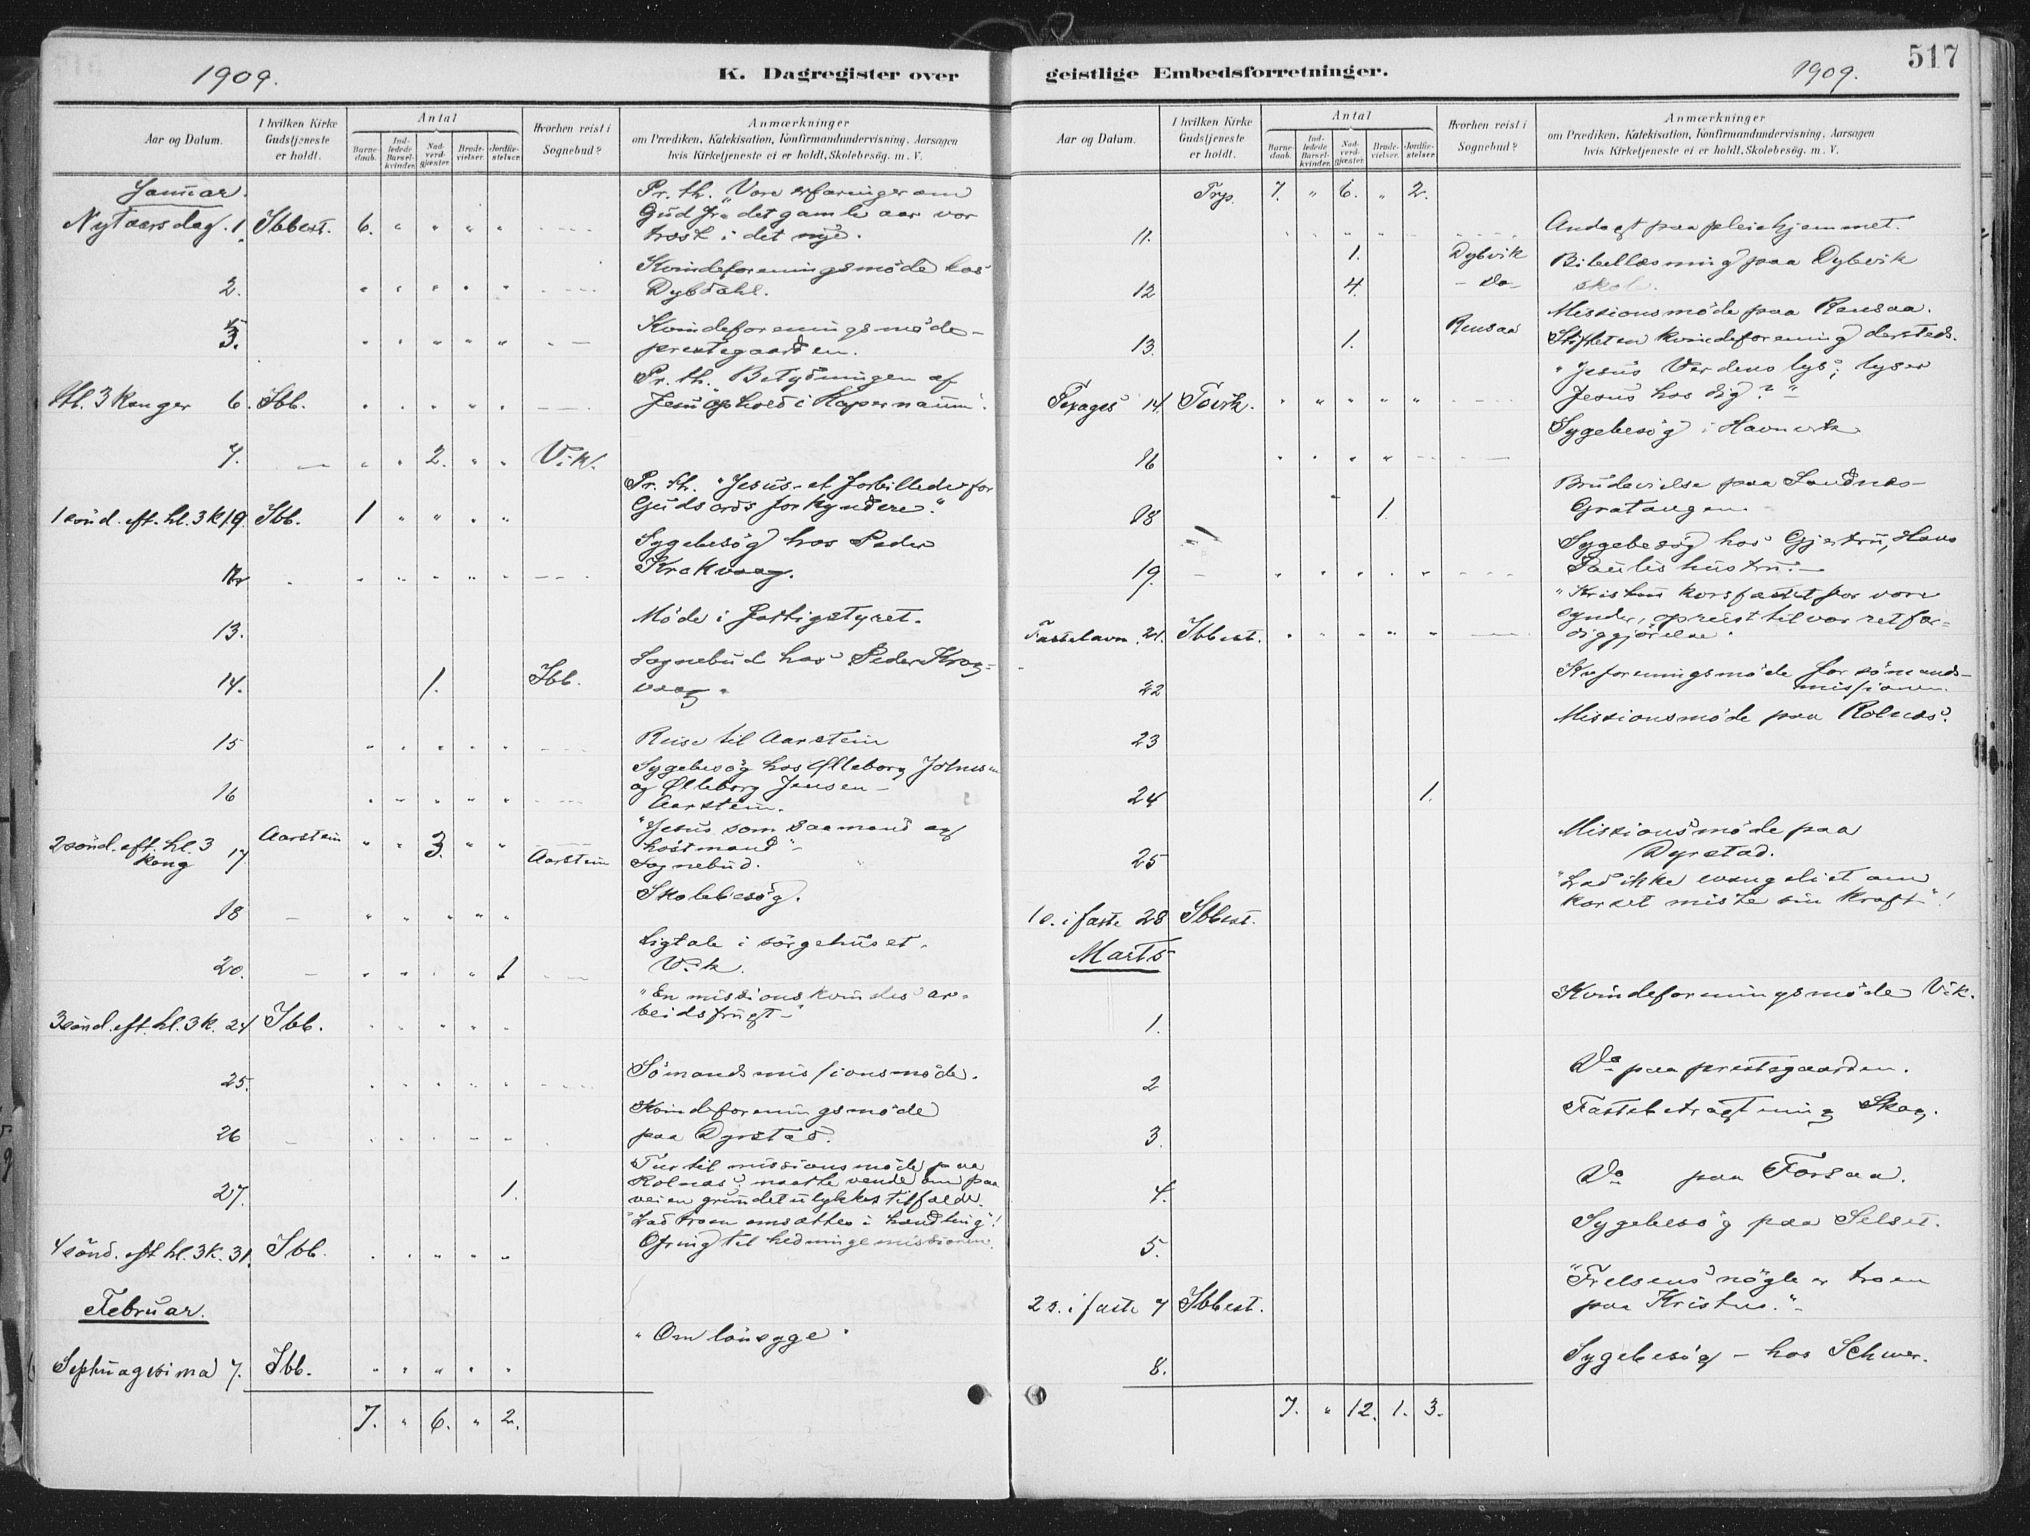 1909.
K. Dagregister over
Aar og Datum.
I hvilken Kirke Gudstjeneste er holdt.
Antal
Barnedaab.
Indledede Barselkvinder.
Nadverdgjester.
Brudevielser.
Jordfæstelser.
Hvorhen reist i Sognebud?
Anmærkninger
om Prædiken, Katekisation, Konfirmandundervisning, Aarsagen
hvis Kirketjeneste ei er holdt, Skolebesøg. m. V.
Januar.
Pr. th. "Vore erfaringer om
Nytaarsdag. 1. Ibbest. 6. " " " " Gud fra det gamle aar vor
trøst i det nye.
Kvindeforeningsmøde hos
2. " " " " " Dybdahl.
Kvindeforeningsmøde
3. " " " " " prestegaarden.
Pr. th. Betydningen af
Hl. 3 Konger 6. Ibb. " " " " " Jesu ophold i Kapernaum.
7. " " 2. " " Vik.
Pr. th. "Jesus et forbillede for
1 sönd. eft. hl. 3 k. Ibb. 1 " " " " Guds ords forkyndere."
Sygebesög hos Peder
" " " " " Krokvaag.
13. Möde i fattigstyret.
Sognebud hos Peder Krog-
14. 1. Ibb. vaag.
15 " " " " " Reise til Aarstein
Sygebesög hos Olleborg
16 " " " " " og Olleborg Jensen
Aarstein.
2 sönd. eft. hl. 3 kong 17 Aarstein " " 3. " " Aarstein "Jesus som saamand og
höstmand"
Sognebud.
18 " " " " " Skolebesög.
Ligtale i sörgehuset.
20. " " " " 1 Vik.
"En missionskvindes ar-
3 sönd. eft. hl. 3 k. 24 Ibb. " " " " beidsfrugt"
25. " " " " " Sömandsmissionsmöde.
Kvindeforeningsmöde
26 " " " " " paa Dyrstad.
Tur til missionsmöde paa
Rolnæs? maatte vende om paa
27. 1. veien grundet ulykkestilfælde.
"Lad troen omsættes i handling"!
4 sönd. eft. hl. 3 k. 31. Ibb. " " " " " Ofring til hedningemissionen.
Februar.
"Om lönsyge"
Septuagesima 7. Ibb. " " " " "
7. " 6. " 2.
geistlige Embedsforretninger.
1909.
517
Aar og Datum.
I hvilken Kirke Gudstjeneste er holdt.
Antal
Barnedaab.
Indledede Barselkvinder.
Nadverdgjester.
Brudevielser.
Jordfæstelser.
Hvorhen reist i Sognebud?
Anmærkninger
om Prædiken, Katekisation, Konfirmandundervisning, Aarsagen
hvis Kirketjeneste ei er holdt, Skolebesøg. m. V.
7. " 6. " 2.
11. " " " " " Andagt paa pleiehjemmet.
1. Dybvik Bibellæsning paa Dybvik
12 4. - Do - skole.
Missionsmøde paa Rensaa.
13. 1. Rensaa Stiftet en kvindeforening dersteds.
"Jesus Verdens lys; lyser
14. " " " " " Jesus hos dig?"
16 " " " " Sygebesög i Havnvik
Brudevielse paa Sandnes
18 1. Gratangen.
Sygebesög hos Gjertru, Hans
19. " " " " " Paulis hustru.
"Kristus korsfæstet for vore
Fastelavn 21. Ibbest. " " " " " synder, opreist til vor retfær-
diggjörelse"
22 Kv.foreningsmøde for sömands-
missionen.
23 Missionsmøde paa Rolnæs.
24 1.
Missionsmøde paa
25 Dyrstad.
"Lad ikke evangeliet om
1 s. i faste 28 Ibbest. korset miste sin kraft"!
Marts
1. Kvindeforeningsmøde Vik.
2 Do paa prestegaarden.
3. Fastebetragtning Skog.
4. Do paa Forsaa.
5. Sygebesög paa Selset.
"Frelsens nögle er troen
2 s. i faste 7 Ibbest. paa Kristus."
8. Sygebesög - hos Schwer.
7. " 12. 1. 3.